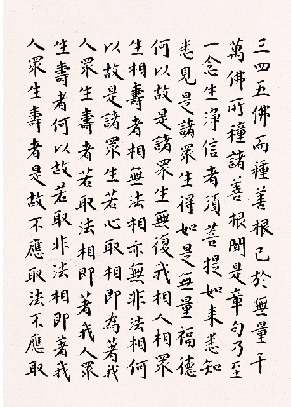 三四五佛而種善根已於無量千
萬佛所種諸善根聞是章句乃至
一念生淨信者須菩提如来悉知
悉見是諸眾生得如是無量福德
何以故是諸眾生無復我相人相眾
生相壽者相無法相亦無非法相何
以故是諸眾生若心取相即為著我
人眾生壽者若取法相即著我人眾
生壽者何以故若取非法相即著我
人眾生壽者是故不應取法不應取